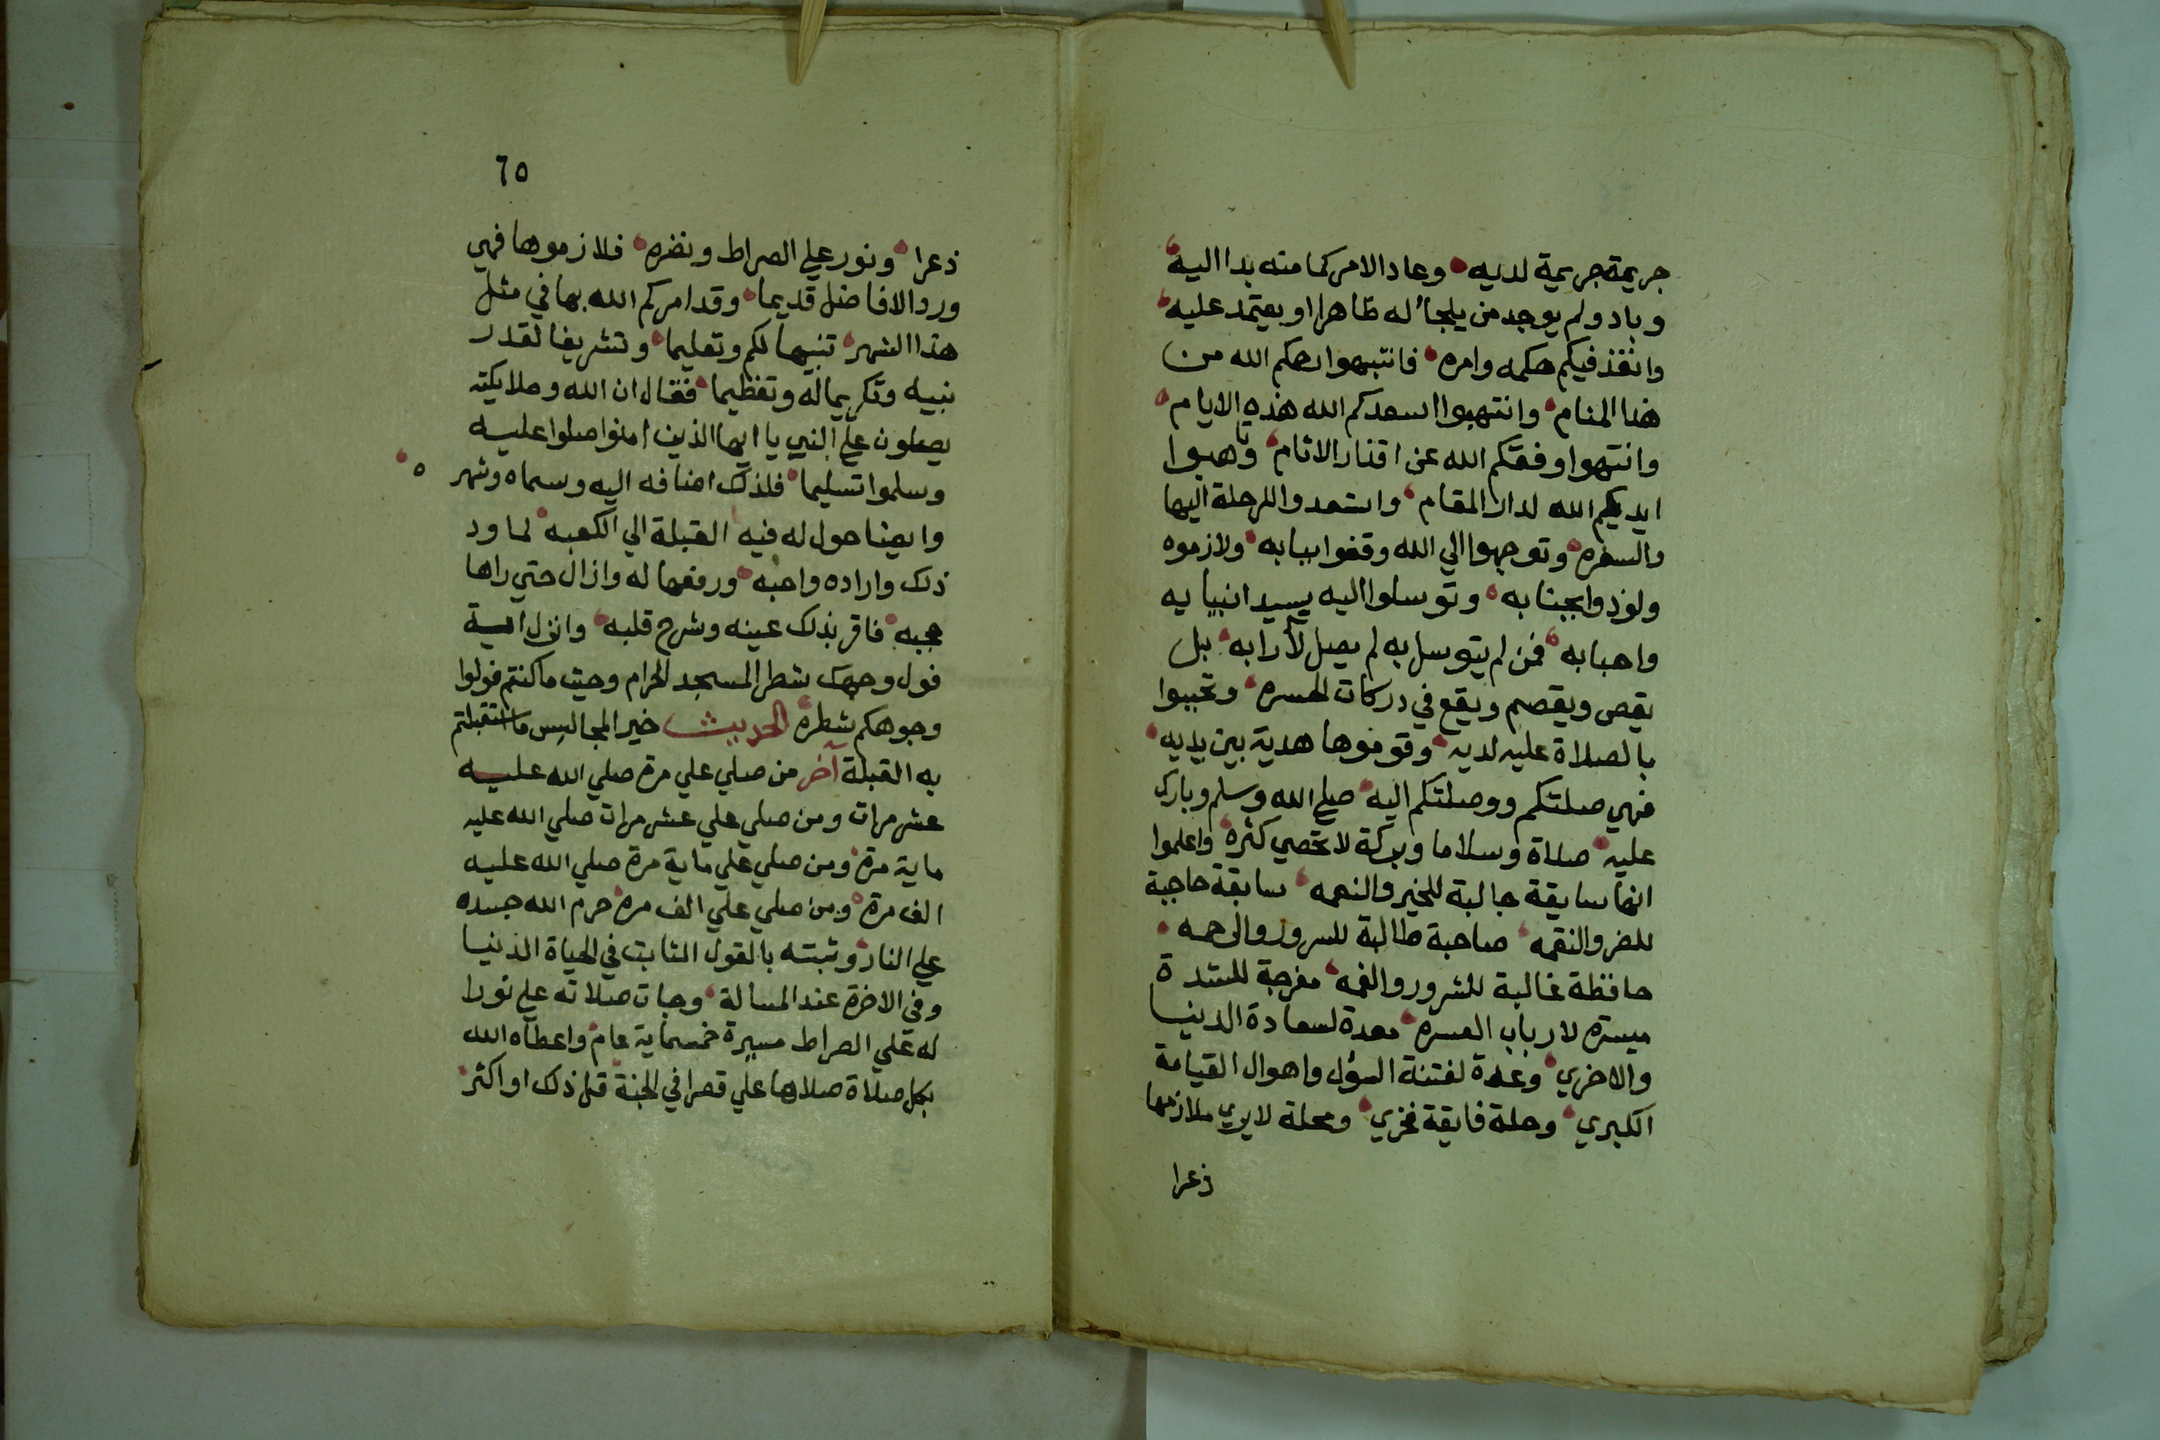 جريمة جريمية لديه وعاد الامر كما منه بدا اليه
وباد ولم يوجد من يلجأ له ظاهرا او يعتمد عليه
وانفذ فيكم حكمه وامره فانتبهوا رحمكم الله من
هذا المنام وانتهبوا اسعدكم الله هذه الايام
وانتهوا وفقكم الله عن اقتار الاثام وتاهبوا
ايديكم الله لدار المقام واستعدوا للرحلة اليها
والسفره وتوجهوا الي الله وقفوا ببابه ولازموه
ولوذوا بجنابه وتوسلوا اليه بسيد انبيايه
واحبابه فمن لم يتوسل به لم يصل لأرابه بل
يقص ويقصم ويقع في دركات الحسره وتحببوا
بالصلاة عليه لديه وقدموها هدية بين يديه
فهي صلتكم ووصلتكم اليه صلي الله وسلم وبارك
عليه صلاة وسلاما وبركة لا تحصي كثره واعلموا
انها سايقة جالبة للخير والنعمه سابقة حاجبة
للضر والنقمه صاحبة طالبة للسرور والرحمه
حافظة غالبة للشرور والغمه مفرجة للشدة
ميسره لارباب العسره معدة لسعادة الدنيا
والاخري وعدة لفتنة السؤل واهوال القيامة
الكبري وحلة فايقة فخري ومحلة لا يري ملازمها
ذعرا
٦٥
ذعرا ونور علي الصراط ونضره فلازموها فهي
ورد الافاضل قديما وقد امركم الله بها في مثل
هذا الشهر تنبيها لكم وتعليما وتشريفا لقدر
نبيه وتكريما له وتعظيما فقال ان الله وملايكته
يصلون علي النبي يا ايها الذين امنوا صلوا عليه
وسلموا تسليما فلذلك اضافه اليه وسماه وشهر ه
وايضا حول له فيه القبلة الي الكعبه لما ود
ذلك واراده واحبه ورفعها له وازال حتي راها
حجبه فاقر بذلك عينه وشرح قلبه وانزل اية
فول وجهك شطر المسجد الحرام وحيث ما كنتم فولوا
وجوهكم شطره الحديث خير المجالس ما استقبلتم
به القبلة آخر من صلي علي مرة صلي الله عليه
عشر مرات ومن صلي علي عشر مرات صلي الله عليه
ماية مرة ومن صلي علي ماية مرة صلي الله عليه
الف مرة ومن صلي علي الف مرة حرم الله جسده
علي النار وثبته بالقول الثابت في الحياة الدنيا
وفي الاخرة عند المسالة وجات صلاته علي نورا
له علي الصراط مسيرة خمسماية عام واعطاه الله
بكل صلاة صلاها علي قصرا في الجنة قل ذلك او اكثر